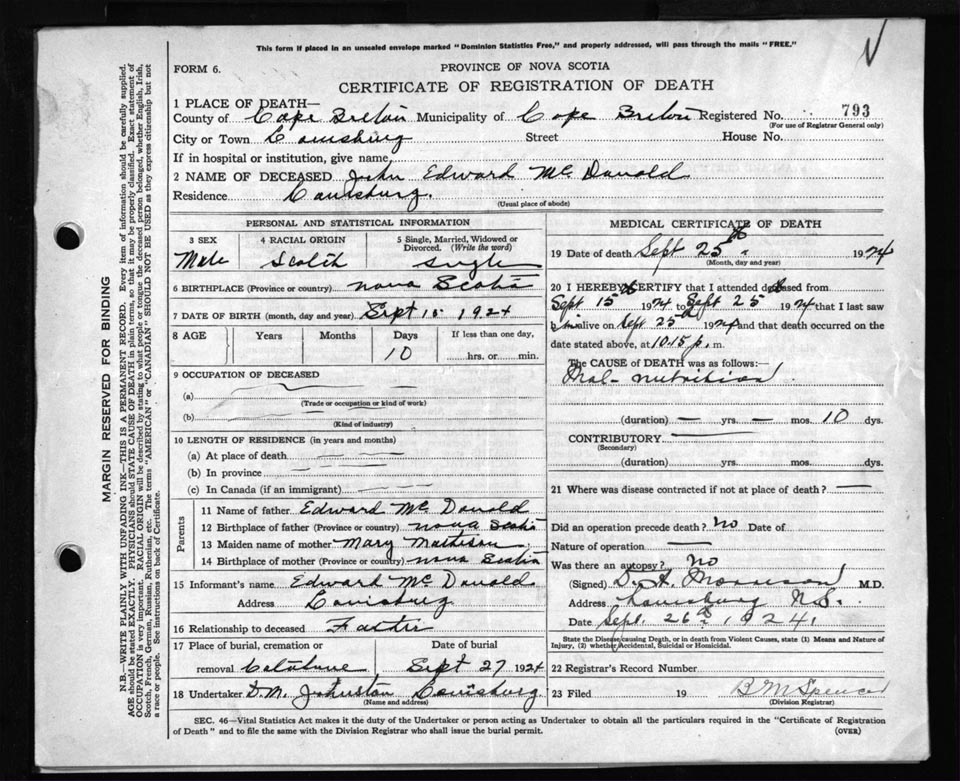 This form if placed in an unsealed envelope marked "Dominion Statistics Free," and properly addressed, will pass through the mails "FREE."
FORM 6.
PROVINCE OF NOVA SCOTIA
CERTIFICATE OF REGISTRATION OF DEATH
1 PLACE OF DEATH—
County of Cape Breton Municipality of Cape Breton Registered No. 793
(For use of Registrar General only)
City or Town Louisburg Street House No.
If in hospital or institution, give name
2 NAME OF DECEASED John Edward McDonald
Residence Louisburg.
(Usual place of abode)
PERSONAL AND STATISTICAL INFORMATION
3 SEX 4 RACIAL ORIGIN 5 Single, Married, Widowed or Divorced. (Write the word)
Male Scotch single
6 BIRTHPLACE (Province or country) Nova Scotia
7 DATE OF BIRTH (month, day and year) Sept 15 1924
8 AGE Years Months Days If less than one day,
10 hrs. or min.
9 OCCUPATION OF DECEASED
(a)
(Trade or occupation or kind of work)
(b)
(Kind of industry)
10 LENGTH OF RESIDENCE (in years and months)
(a) At place of death
(b) In province
(c) In Canada (if an immigrant)
Parents
11 Name of father Edward McDonald
12 Birthplace of father (Province or country) Nova Scotia
13 Maiden name of mother Mary Matheson
14 Birthplace of mother (Province or country) Nova Scotia
15 Informant's name Edward McDonald
Address Louisburg
16 Relationship to deceased Father
17 Place of burial, cremation or Date of burial
removal Catalone Sept 27 1924
18 Undertaker D.M. Johnston Louisburg
(Name and address)
MEDICAL CERTIFICATE OF DEATH
19 Date of death Sept 25th 1924
(Month, day and year)
20 I HEREBY CERTIFY that I attended deceased from
Sept 15th 1924 to Sept 25th 1924 that I last saw
h im alive on Sept 25th 1924 and that death occurred on
the date stated above, at 10.15 p. m.
The CAUSE of DEATH was as follows:
Mal-nutrition
(duration) — yrs. — mos. 10 dys.
CONTRIBUTORY —
(Secondary)
(duration) yrs. mos. dys.
21 Where was disease contracted if not at place of death? —
Did an operation precede death? No Date of
Nature of operation —
Was there an autopsy? No
(Signed) D. A. Morrison M.D.
Address Louisburg N.S.
Date Sept. 26th 1924
State the Disease causing Death, or in death from Violent Causes, state (1) Means and Nature of
Injury, (2) whether Accidental, Suicidal or Homicidal.
22 Registrar's Record Number
23 Filed 19 B M Spencer
(Division Registrar)
SEC. 46—Vital Statistics Act makes it the duty of the Undertaker or person acting as Undertaker to obtain all the particulars required in the "Certificate of Registration
of Death" and to file the same with the Division Registrar who shall issue the burial permit. (OVER)
MARGIN RESERVED FOR BINDING
N.B.—WRITE PLAINLY WITH UNFADING INK—THIS IS A PERMANENT RECORD. Every item of information should be carefully supplied.
AGE should be stated EXACTLY. PHYSICIANS should STATE CAUSE OF DEATH in plain terms, so that it may be properly classified. Exact statement of
OCCUPATION is very important. RACIAL ORIGIN will be described by stating to what people or tongue the deceased person belonged, whether English, Irish,
Scotch, French, German, Russian, Ruthenian, etc. The terms "AMERICAN" or "CANADIAN" SHOULD NOT BE USED as they express citizenship but not
a race or people. See instructions on back of Certificate.